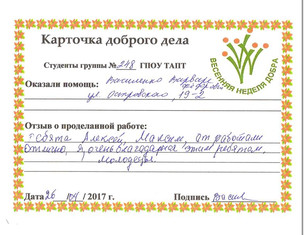 Карточка доброго дела
Студенты группы № 248 ГПОУ ТАПТ
ВЕСЕННЯЯ НЕДЕЛЯ ДОБРА
Оказали помощь: Василенко Варваре
ул Островского, 19-2
Отзыв о проделанной работе:
ребята Алексей, Максим, отработали
отлично, я очень благодарная этим ребятам,
молодцы
Дата 26 / 2017 г. Подпись Васил